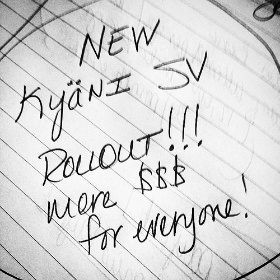 NEW
KyäNI SV
ROLLOUT!!!
more $$$
for everyone!